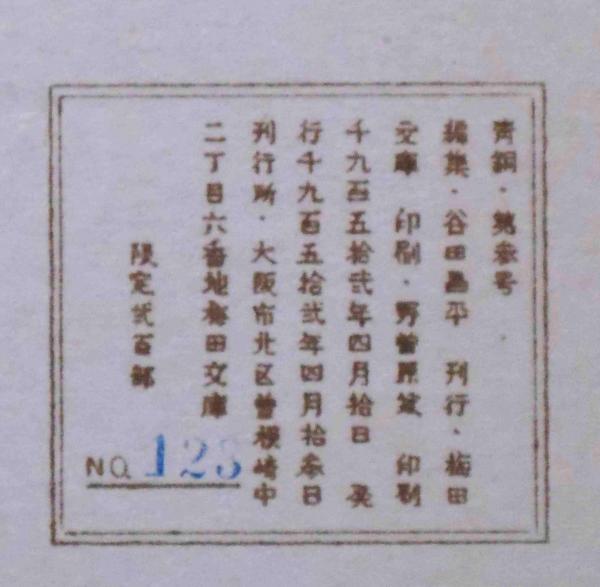 青銅・第参号
編集・谷田昌平 刊行・梅田
文庫 印刷・野曽原 印刷
千九百五拾弐年四月拾日 発
行千九百五拾弐年四月拾参日
刊行所・大阪市北区曽根崎中
二丁目六番地梅田文庫
限定弐百部
NO. 123